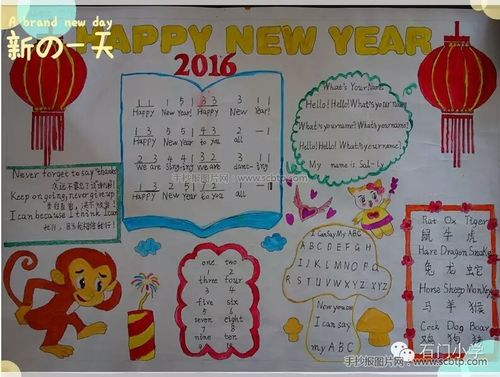 A brand new day
新の一天
HAPPY NEW YEAR
2016
1 1 1 5 1 3 3 3 1 1
Happy New Year! Happy New Year
1 3 5 5 4 3 2 —
Happy New Year to you all
2 3 4 4 3 2 3 1
We are sing-ing We are danc-ing
1 3 2 5 7 2 1 —
Happy New Year to you all
What's Your Name
Hello! Hello! What's your name
What's your name? What's your name?
Hello! Hello! What's your name?
My name is Sal-ly
Never forget to say thanks
Keep on going, never give up
I can because I think I can
one two
three four
five six
seven eight
nine ten
I Can Say My ABC
A B C D E F G H
I J K L M N O P Q
R S T U V W X Y Z
Now you see
I can say
my ABC
Rat Ox Tiger
鼠 牛 虎
Hare Dragon Snake
兔 龙 蛇
Horse Sheep Monkey
马 羊 猴
Cock Dog Boar
鸡 狗 猪
手抄报图片网 www.scbtp.com
手抄报图片网 www.scbtp.com
石门小学